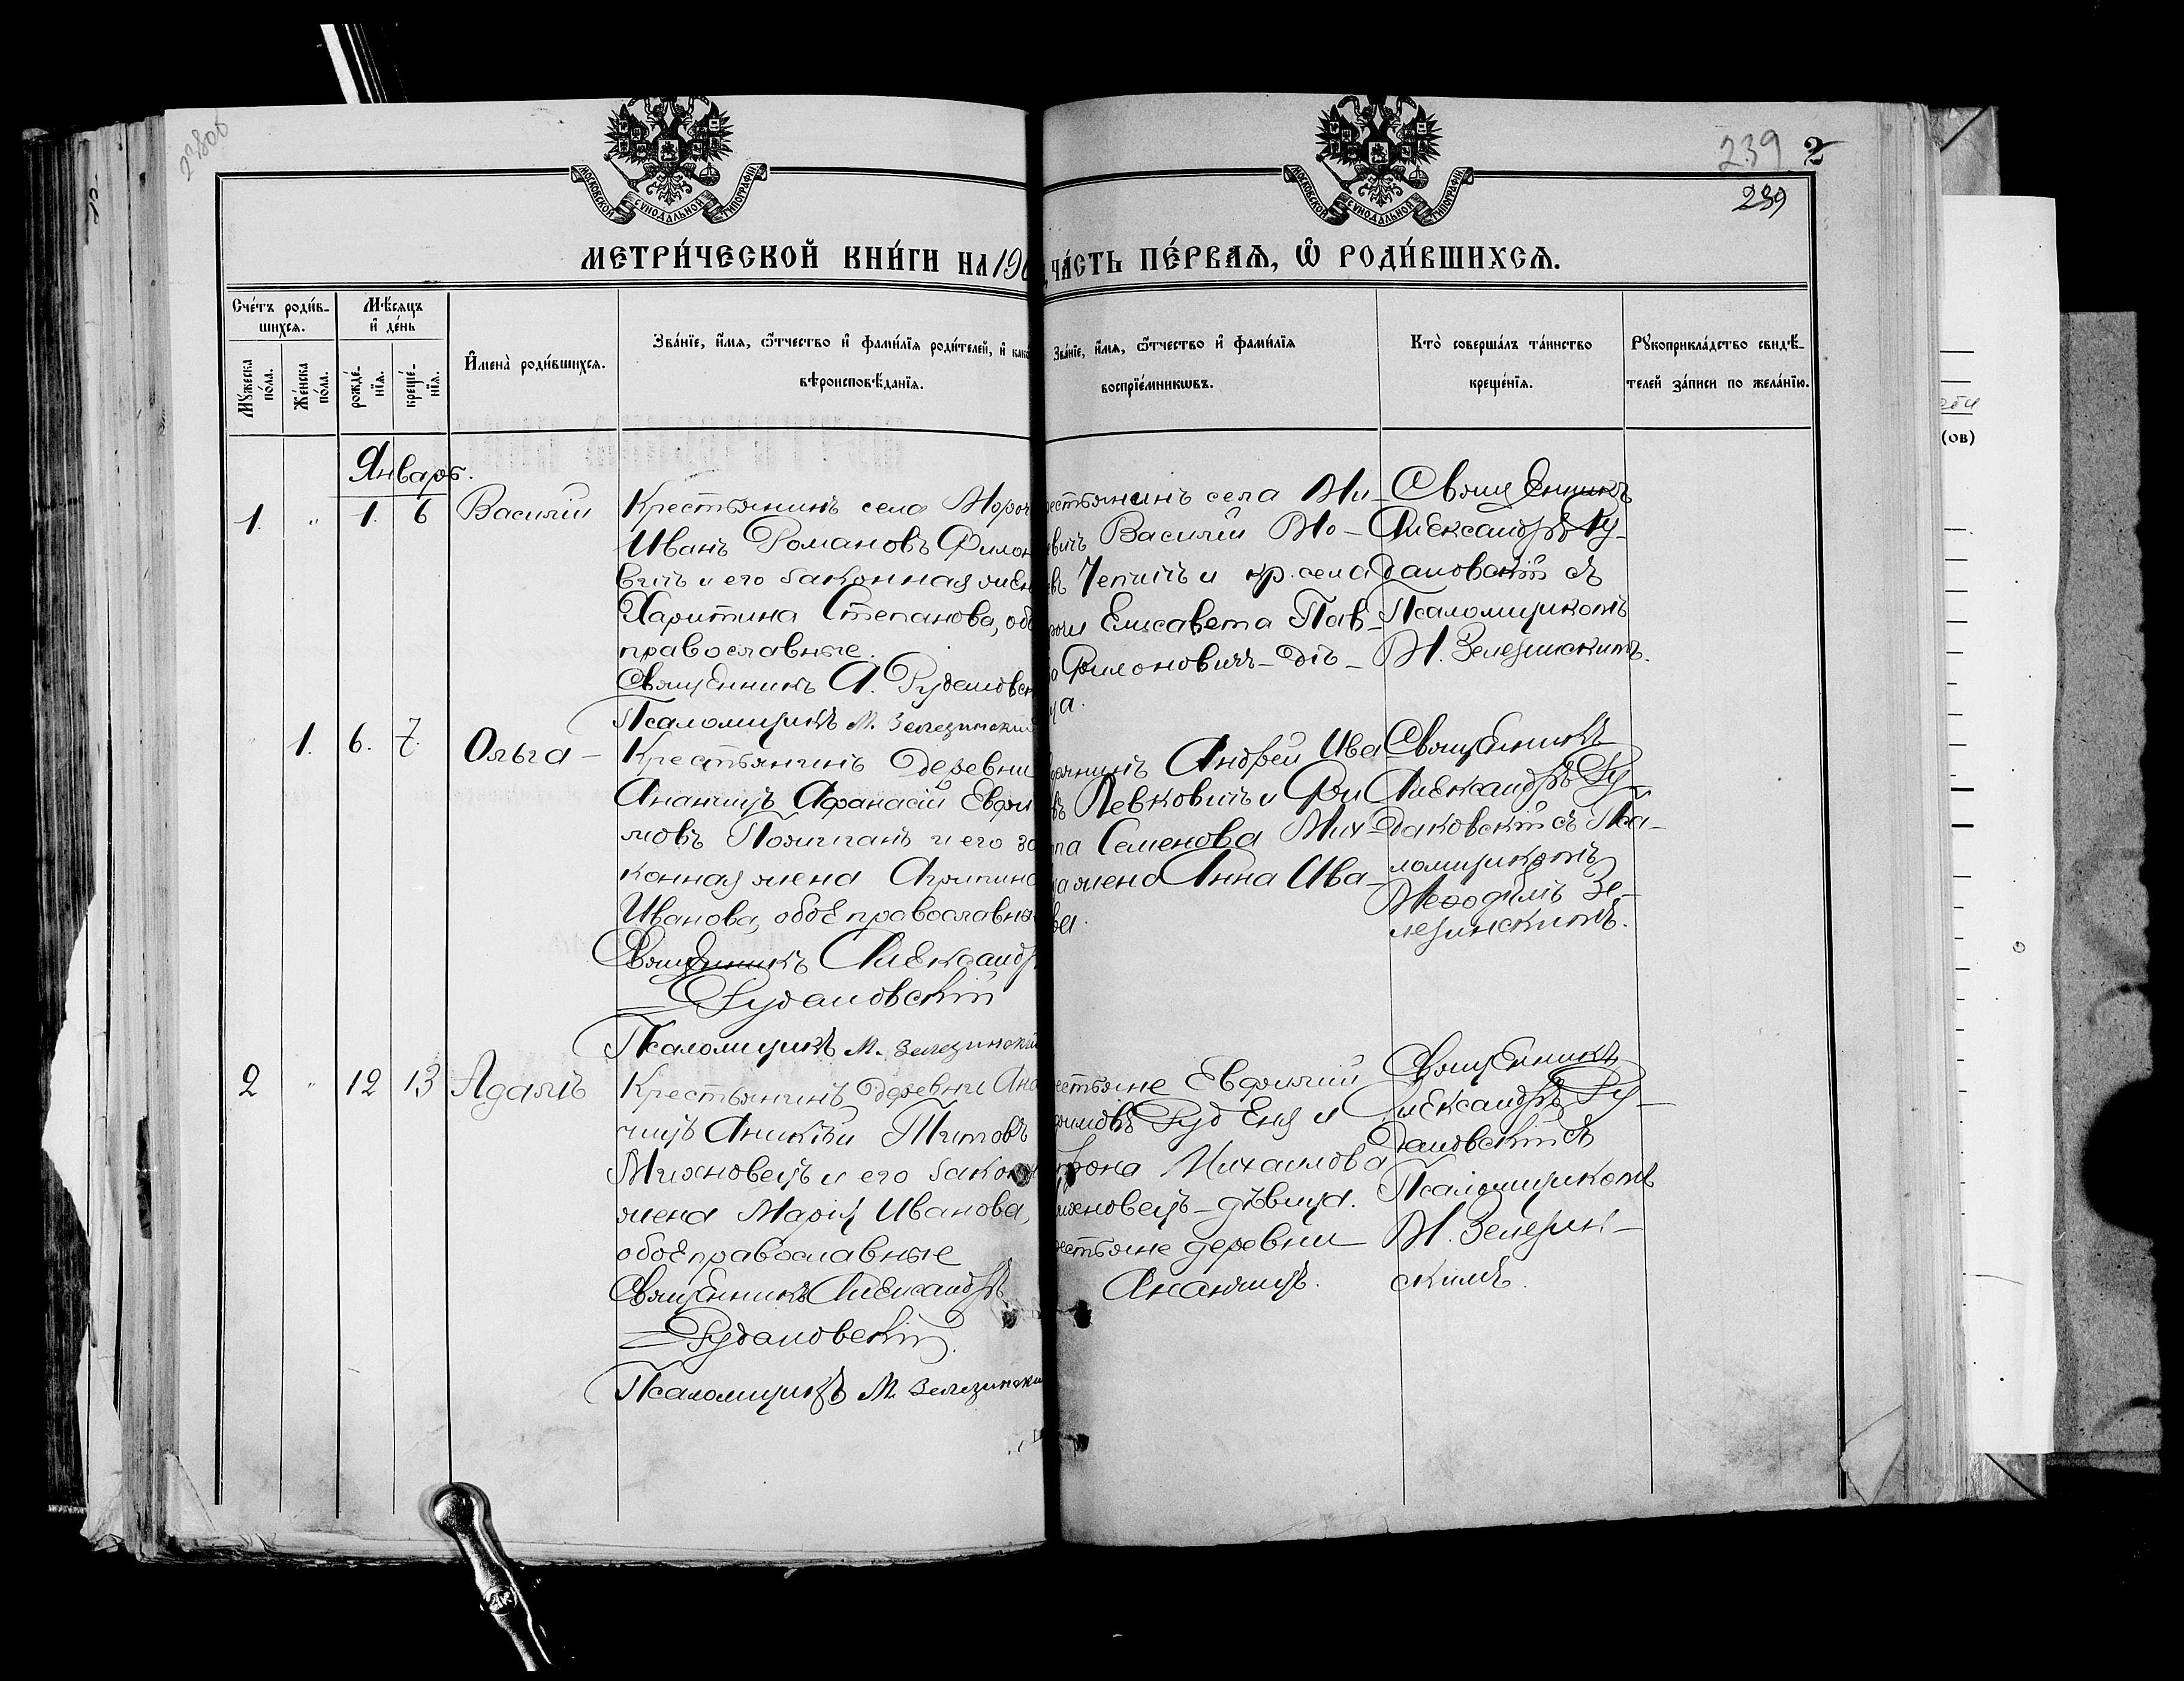 239 2
239
МОСКОВСКОЙ СУНОДАЛЬНОЙ ТИПОГРАФІИ
МОСКОВСКОЙ СУНОДАЛЬНОЙ ТИПОГРАФІИ
МЕТРИ́ЧЕСКОЙ КНИ́ГИ НА 190
ЧА́СТЬ ПЕ́РВАѦ, Ѽ РОДИ́ВШИХСѦ.
Сче́тъ роди́в-
шихсѧ.
Мѣ́сѧцъ
и҆ де́нь
Мꙋ́жеска по́ла.
Же́нска по́ла.
рожде́-
нїѧ.
креще́-
нїѧ.
И҆мена̀ роди́вшихсѧ.
Зва́нїе, и҆́мѧ, ѻ҆́тчество и҆ фами́лїѧ роди́телей, и҆ како
вѣроисповѣ́данїѧ.
Зва́нїе, и҆́мѧ, ѻ҆́тчество и҆ фами́лїѧ
воспрїе́мникѡвъ.
Кто̀ соверша́лъ та́инство
креще́нїѧ.
Рꙋкоприкла́дство свидѣ́-
телей за́писи по жела́нїю.
Январь.
1. " 1. 6 Василій
Крестьянинъ села Мороч
Иванъ Романовъ Филон
вичъ и его законная жен
Харитина Степанова, об
православные.
Священникъ А. Рудановск
Псаломщикъ М. Зелезинский
естьянинъ села Ми-
вичъ Василій Мо-
въ Чепичъ и кр. села
рочи Елисавета Пав-
а Филоновичъ - дѣ-
ца.
Священникъ
Александръ Ру-
дановскій съ
Псаломщикомъ
М. Зелезинскимъ.
" 1. 6. 7. Ольга -
Крестьянинъ деревни
Ананчицъ Афанасій Евфи
мовъ Полиганъ и его за
конная жена Агрипина
Иванова, обое православны
Священникъ Александр
Рудановскій
Псаломщикъ М. Зелезинский
янинъ Андрей Ива
въ Левковичъ и Фи
па Семенова Мих-
жена Анна Ива-
ва.
Священникъ
Александръ Ру-
дановскій съ Пса-
ломщикомъ
Меѳодіемъ Зе-
лезинскимъ.
2 " 12 13 Адамъ
Крестьянинъ деревни Ана
чицъ Аникій Титовъ
Михновецъ и его закон
жена Марія Иванова,
обое православные
Священникъ Александръ
Рудановскій.
Псаломщикъ М. Зелезински
естьяне Евфимій
фимовъ Руденя и
Михаилова
ихновецъ - дѣвица.
естьяне деревни
Ананчицъ.
Священникъ
Александръ Ру-
дановскій съ
Псаломщикомъ
М. Зелезин-
скимъ.
(ов)